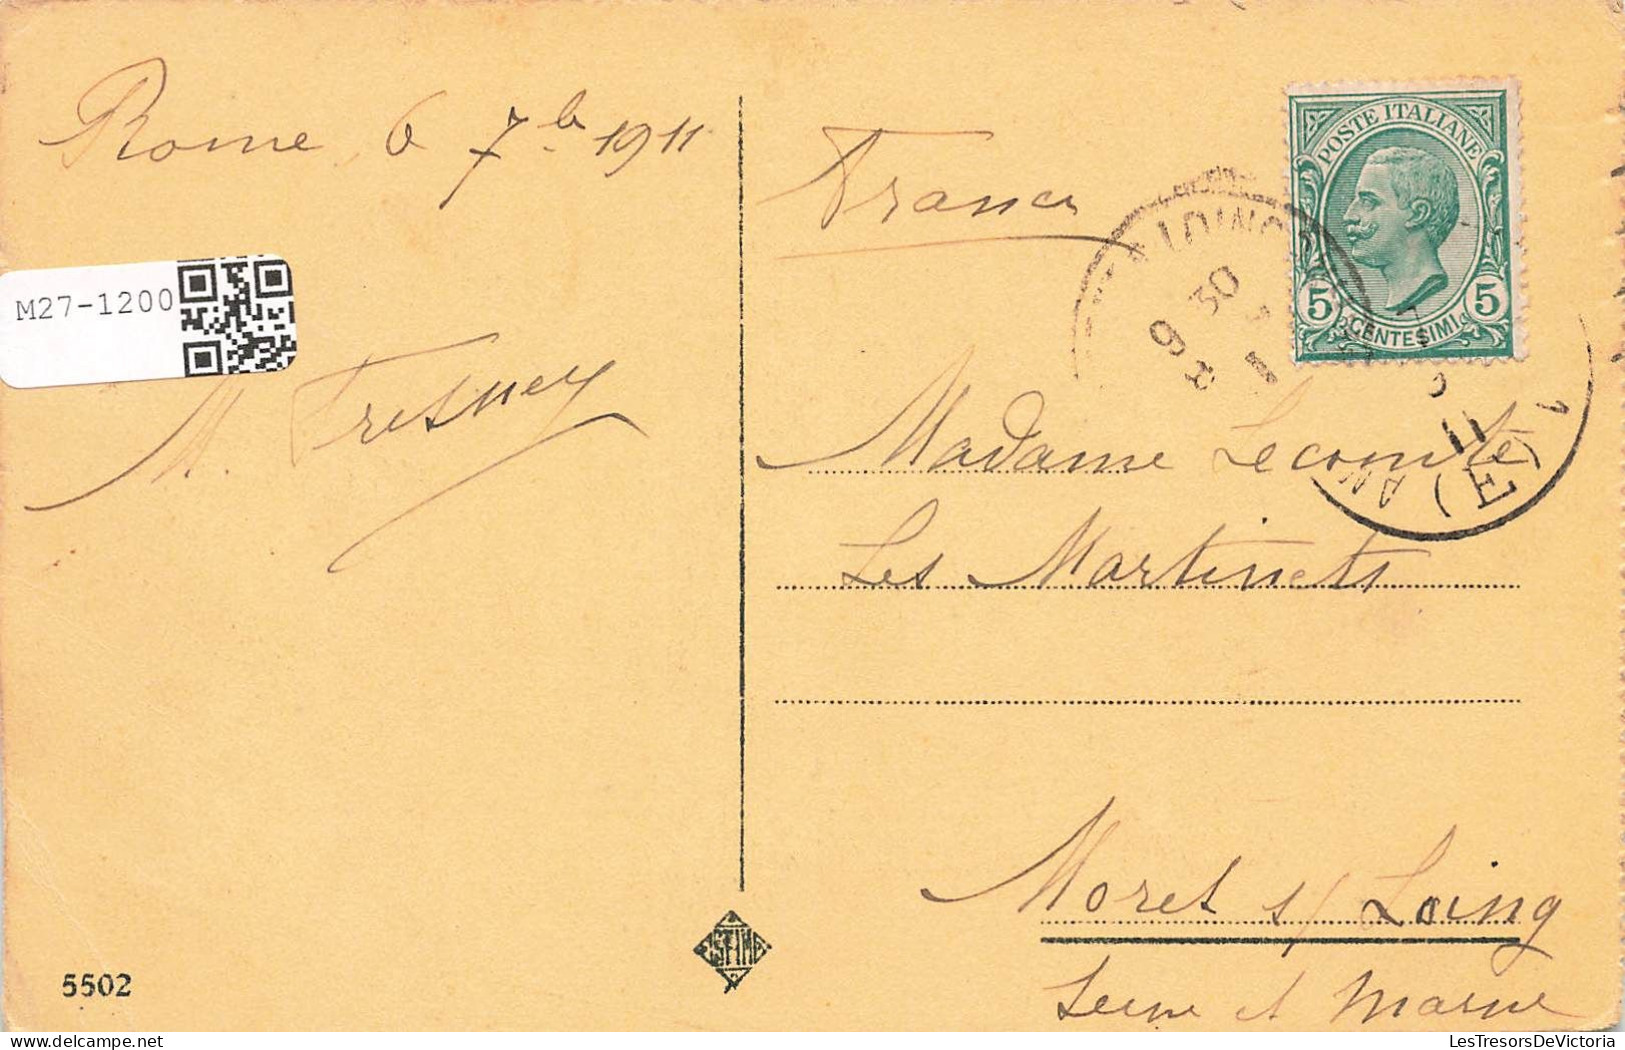 Rome, 6 7bre 1911
France
POSTE ITALIANE
5 CENTESIMI 5
M27-1200
9 30
M. Fresney
Madame Lecomte
Les Martinets
Moret s/ Loing
Seine et Marne
5502
LesTresorsDeVictoria.com